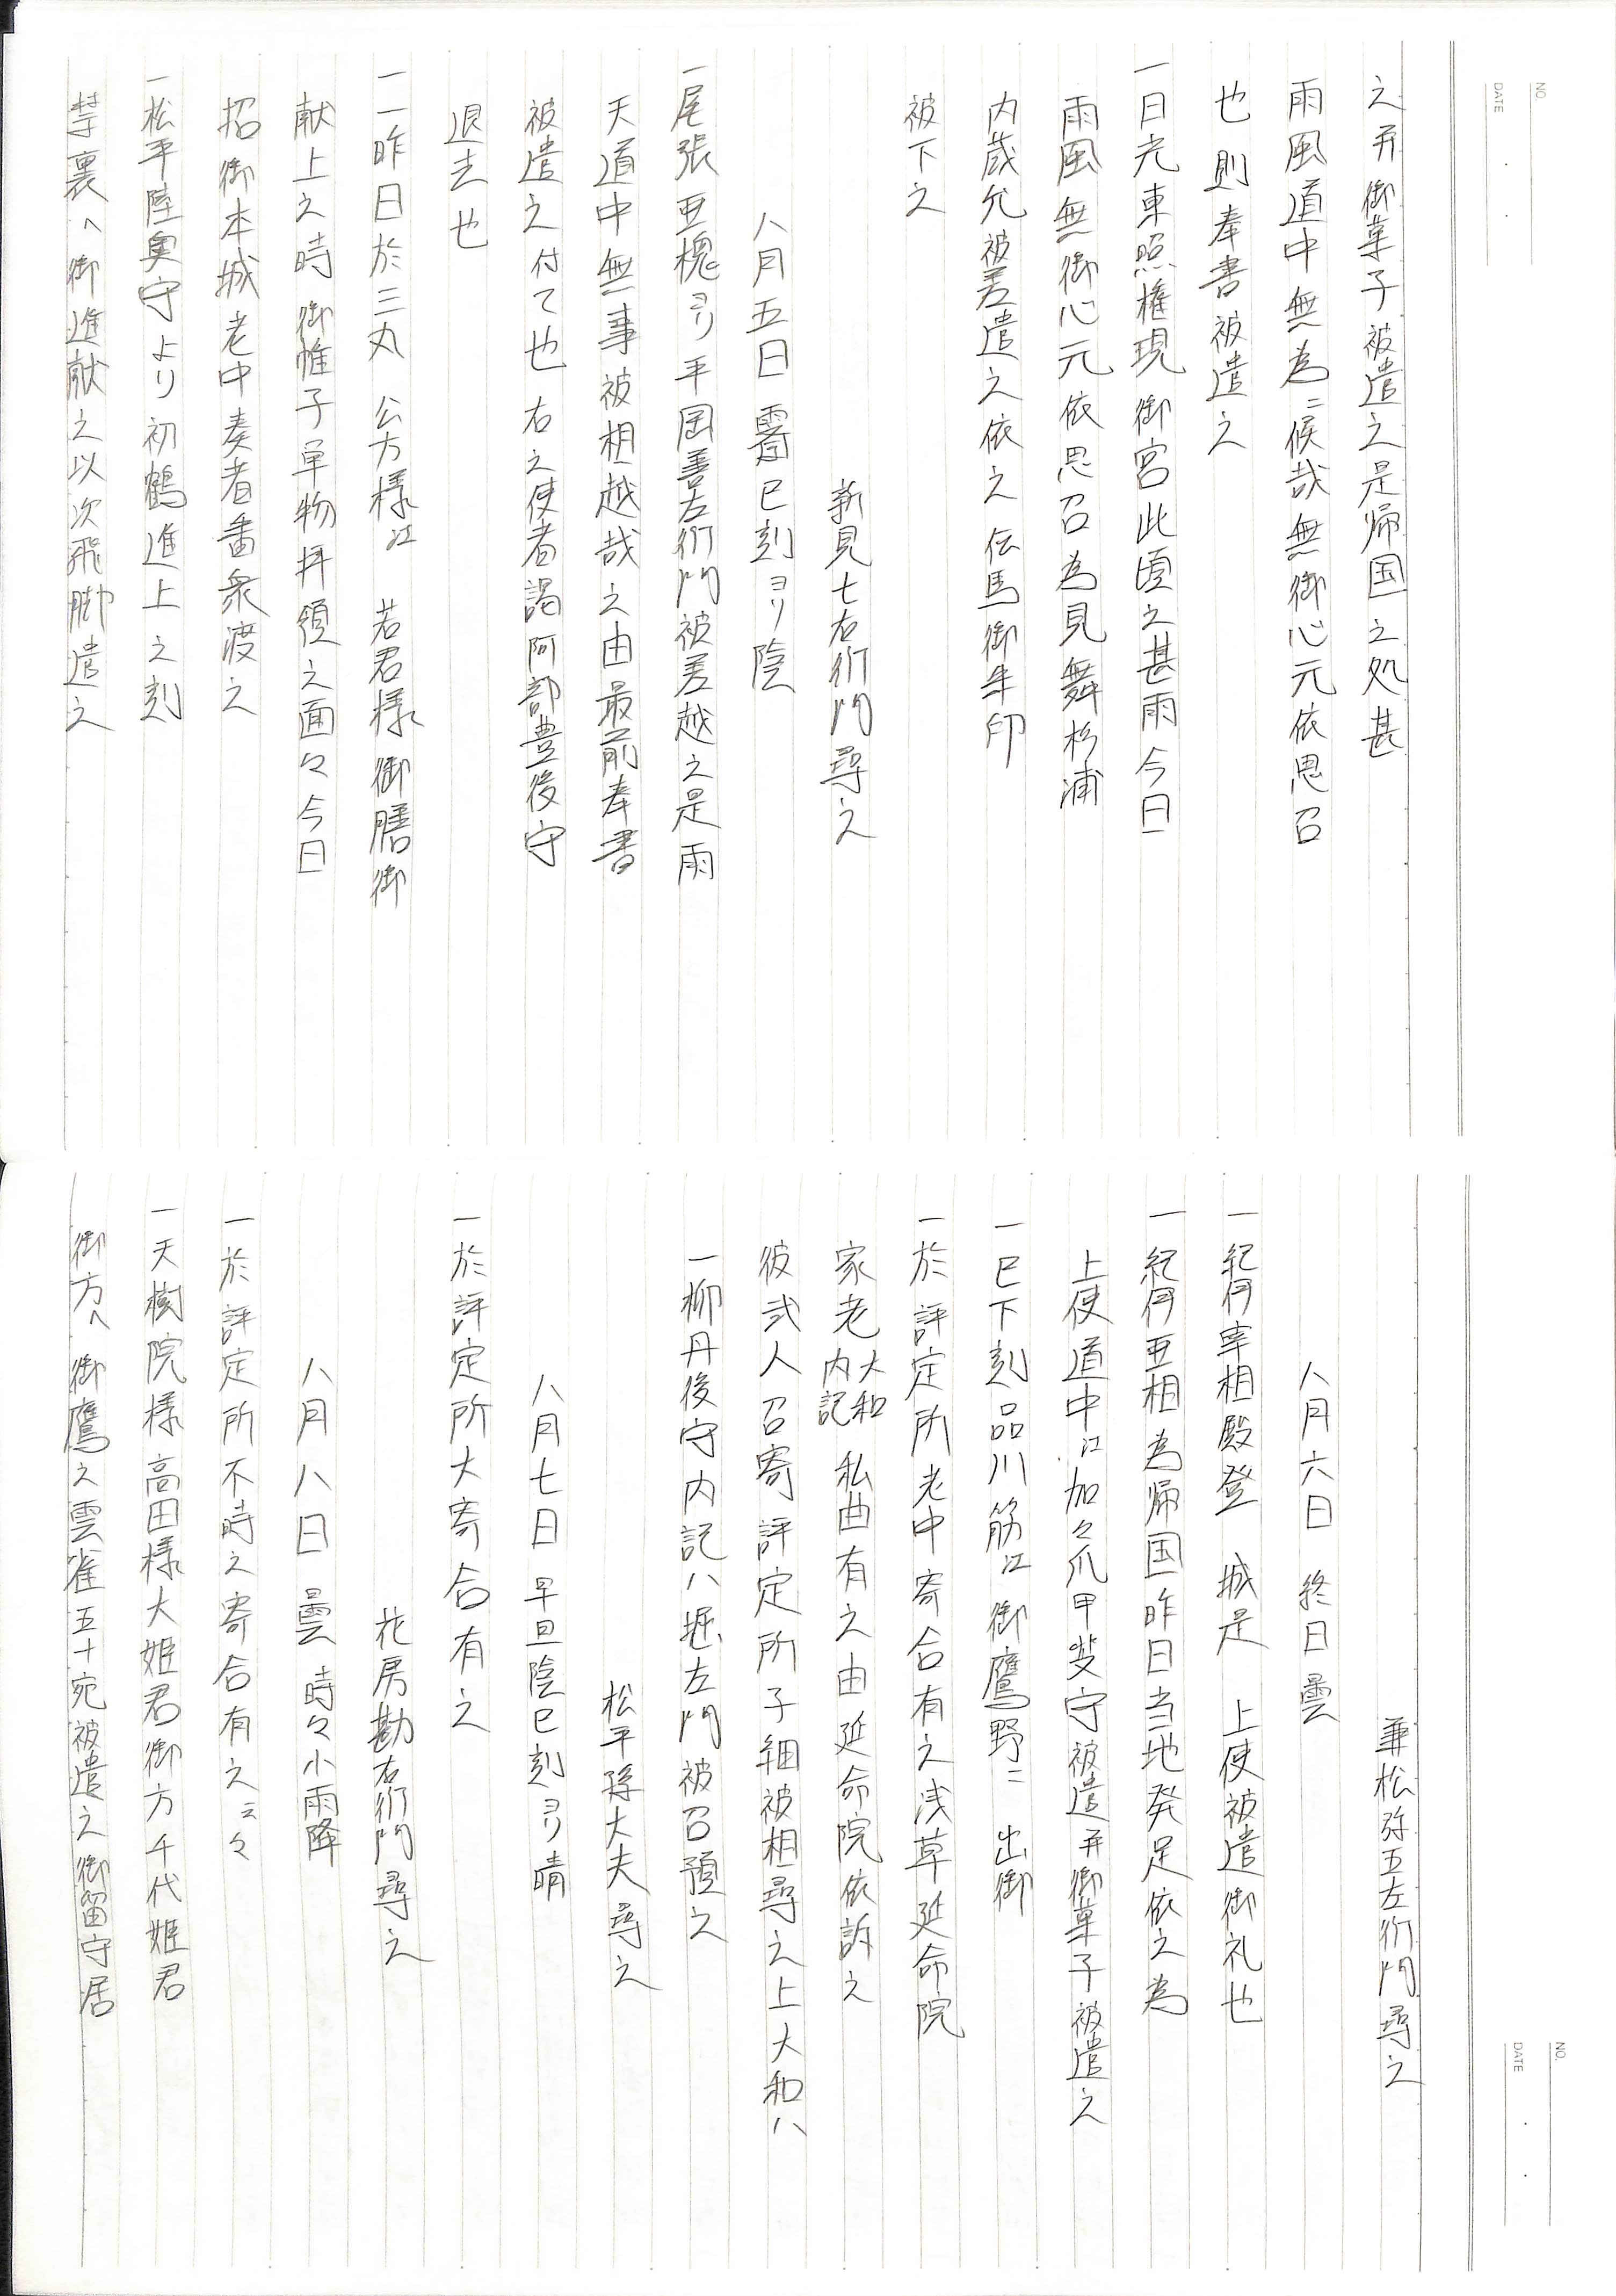 NO.
DATE
之并御菓子被遣之是帰国之処甚
雨風道中無為ニ候哉無御心元依思召
也則奉書被遣之
一日光東照権現御宮此頃之甚雨今日
雨風無御心元依思召為見舞杉浦
内蔵允被差遣之依之伝馬御朱印
被下之
新見七右衛門尋之
八月五日霽巳刻ヨリ陰
一尾張亜槐ヨリ平岡善左衛門被差越之是雨
天道中無事被相越哉之由最前奉書
被遣之付て也右之使者謁阿部豊後守
退去也
一一昨日於三丸 公方様江 若君様御膳御
献上之時御帷子単物拝領之面々今日
招御本城老中奏者番衆渡之
一松平陸奥守より初鶴進上之刻
禁裏へ御進献之以次飛脚遣之
NO.
DATE
兼松弥五左衛門尋之
八月六日 終日曇
一紀伊宰相殿登 城是 上使被遣御礼也
一紀伊亜相為帰国昨日当地発足依之為
上使道中江加々爪甲斐守被遣并御菓子被遣之
一巳下刻品川筋江御鷹野ニ 出御
一於評定所老中寄合有之浅草延命院
家老大和内記私曲有之由延命院依訴之
彼弐人召寄評定所子細被相尋之上大和ハ
一柳丹後守内記ハ堀左門被召預之
松平孫大夫尋之
八月七日早旦陰巳刻ヨリ晴
一於評定所大寄合有之
花房勘右衛門尋之
八月八日曇時々小雨降
一於評定所不時之寄合有之云々
一天樹院様高田様大姫君御方千代姫君
御方へ御鷹之雲雀五十宛被遣之御留守居